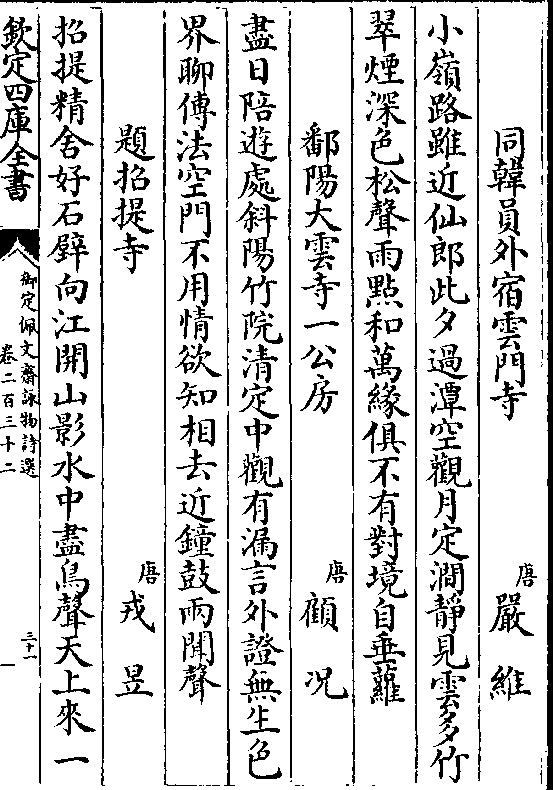 同韓員外宿雲門寺 唐 嚴維
小嶺路雖近仙郎此夕過潭空觀月定澗靜見雲多竹
翠煙深色松聲雨點和萬緣俱不有對境自垂蘿
鄱陽大雲寺一公房 唐 顧況
盡日陪遊處斜陽竹院清定中觀有漏言外證無生色
界聊傳法空門不用情欲知相去近鐘鼓兩聞聲
題招提寺 唐 戎昱
招提精舍好石壁向江開山影水中盡鳥聲天上來一
欽定四庫全書
御定佩文齋詠物詩選
卷二百三十二
三十一